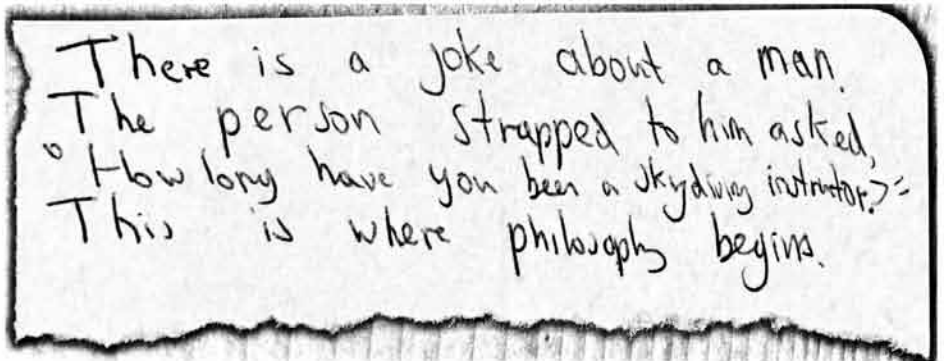 There is a joke about a man.
The person strapped to him asked,
"How long have you been a skydiving instructor?"
This is where philosophy begins.